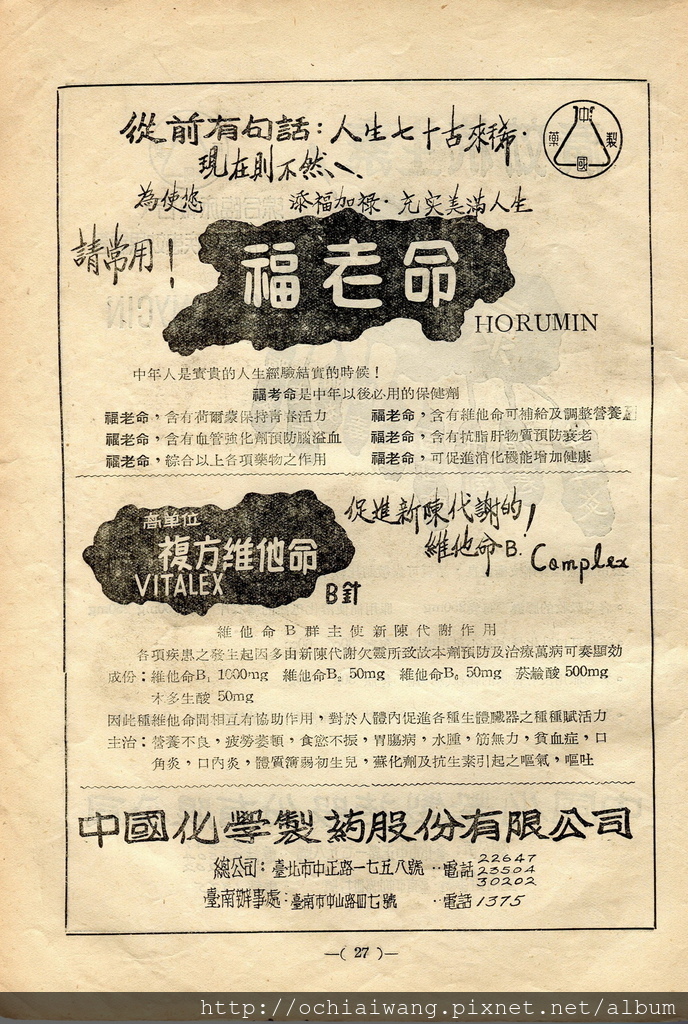 從前有句話：人生七十古來稀．
現在則不然、、
為使您 添福加祿．充实美滿人生
請常用！
福老命
HORUMIN
中 製 藥 國
中年人是寶貴的人生經驗結實的時候！
福老命是中年以後必用的保健劑
福老命，含有荷爾蒙保持青春活力
福老命，含有血管強化劑預防腦溢血
福老命，綜合以上各項藥物之作用
福老命，含有維他命可補給及調整營養
福老命，含有抗脂肝物質預防衰老
福老命，可促進消化機能增加健康
高單位
複方維他命
VITALEX
B針
促進新陳代謝的，
維他命B. Complex
維他命B群主使新陳代謝作用
各項疾患之發生起因多由新陳代謝欠靈所致故本劑預防及治療萬病可奏顯効
成份：維他命B₁ 1000mg 維他命B₂ 50mg 維他命B₆ 50mg 菸鹼酸 500mg
本多生酸 50mg
因此種維他命間相互有協助作用，對於人體內促進各種生體臟器之種種賦活力
主治：營養不良，疲勞萎頓，食慾不振，胃腸病，水腫，筋無力，貧血症，口
角炎，口內炎，體質薄弱初生兒，蘇化劑及抗生素引起之嘔氣，嘔吐
中國化學製葯股份有限公司
總公司：臺北市中正路一七五八號‥電話 22647
23504
30202
臺南辦事處：臺南市中山路四七號 ‥電話 1375
—( 27 )—
http://ochiaiwang.pixnet.net/album